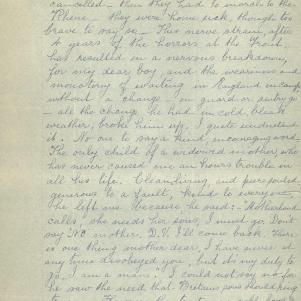 cancelled - then they had to march to the
Rhine - they were home sick, though too
brave to say so - This nerve strain, after
4 years of the horrors at the Front,
has resulted in a nervous breakdown,
for my dear boy, and the weariness and
monotony of waiting in England in camp,
without a change - on guard or
- all the change he had in cold, bleak
weather, broke him up, I quite understand
it. No one to say a kind, encouraging word.
The only child of a widowed mother, who
has never caused one an hours trouble in
all his life. Clean living and pure souled
generous to a fault, to everyone
She left me because he said: - "Motherland
calls", she needs her sons, I must go. Don't
say 'No' mother, D.V. I'll come back. There
is one thing mother dear, I have never at
any time disobeyed you, but do my duty to
go, I am a man". I could not say no for
he saw the need that Britains sons should